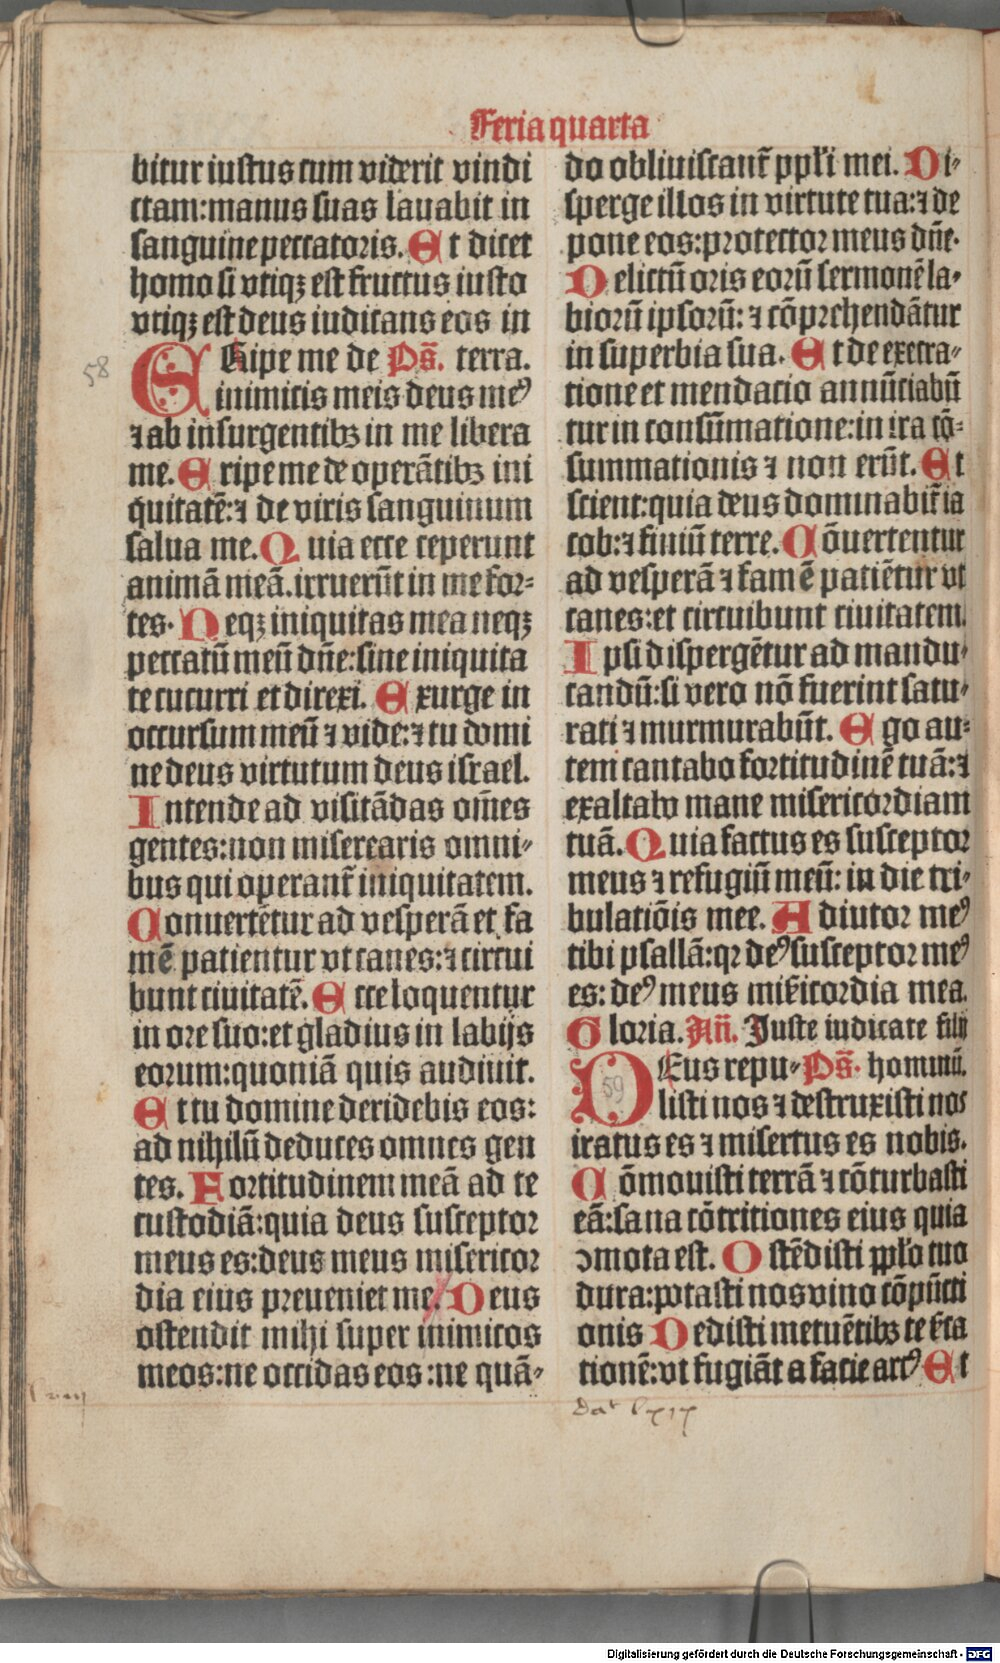 Feria quarta
bitur iustus cum viderit vindi
ctam: manus suas lauabit in
sanguine peccatoris. Et dicet
homo si vtiqꝫ est fructus iusto
vtiqꝫ est deus iudicans eos in
58
ERipe me de Ps̄. terra.
inimicis meis deus meꝰ
⁊ ab insurgentibꝫ in me libera
me. Eripe me de operātibꝫ ini
quitatē: ⁊ de viris sanguinum
salua me. Quia ecce ceperunt
animā meā. irruerūt in me for⸗
tes. Neqꝫ iniquitas mea neqꝫ
peccatū meū dn̄e: sine iniquita
te cucurri et direxi. Exurge in
occursum meū ⁊ vide: ⁊ tu domi
ne deus virtutum deus israel.
Intende ad visitādas om̄es
gentes: non miserearis omni⸗
bus qui operant̄ iniquitatem.
Conuertētur ad vesperā et fa
mē patientur vt canes: ⁊ circui
bunt ciuitatē. Ecce loquentur
in ore suo: et gladius in labijs
eorum: quoniā quis audiuit.
Et tu domine deridebis eos:
ad nihilū deduces omnes gen
tes. Fortitudinem meā ad te
custodiā: quia deus susceptor
meus es: deus meus misericor
dia eius preueniet me. Deus
ostendit mihi super inimicos
meos: ne occidas eos: ne quā⸗
do obliuiscant̄ ppl̄i mei. Di⸗
sperge illos in virtute tua: ⁊ de
pone eos: protector meus dn̄e.
Delictū oris eorū sermonē la⸗
biorū ipsorū: ⁊ cōprehendātur
in superbia sua. Et de execra⸗
tione et mendacio annūciabū
tur in consūmatione: in ira cō⸗
summationis ⁊ non erūt. Et
scient: quia deus dominabit̄ ia
cob: ⁊ finiū terre. Cōuertentur
ad vesperā ⁊ famē patiētur vt
canes: et circuibunt ciuitatem.
Ipsi dispergētur ad mandu⸗
candū: si vero nō fuerint satu⸗
rati ⁊ murmurabūt. Ego au⸗
tem cantabo fortitudinē tuā: ⁊
exaltabo mane misericordiam
tuā. Quia factus es susceptor
meus ⁊ refugiū meū: in die tri⸗
bulatiōis mee. Adiutor meꝰ
tibi psallā: qr deꝰ susceptor meꝰ
es: deꝰ meus mīcordia mea.
Gloria. Añ. Juste iudicate filij
59
DEus repu⸗ Ps̄. hominū.
listi nos ⁊ destruxisti nos
iratus es ⁊ misertus es nobis.
Cōmouisti terrā ⁊ cōturbasti
eā: sana cōtritiones eius quia
ꝯmota est. Ostēdisti ppl̄o tuo
dura: potasti nos vino cōpūcti
onis Dedisti metuētibꝫ te sīca
tionē: vt fugiāt a facie arcꝰ Et
Digitalisierung gefördert durch die Deutsche Forschungsgemeinschaft - DFG